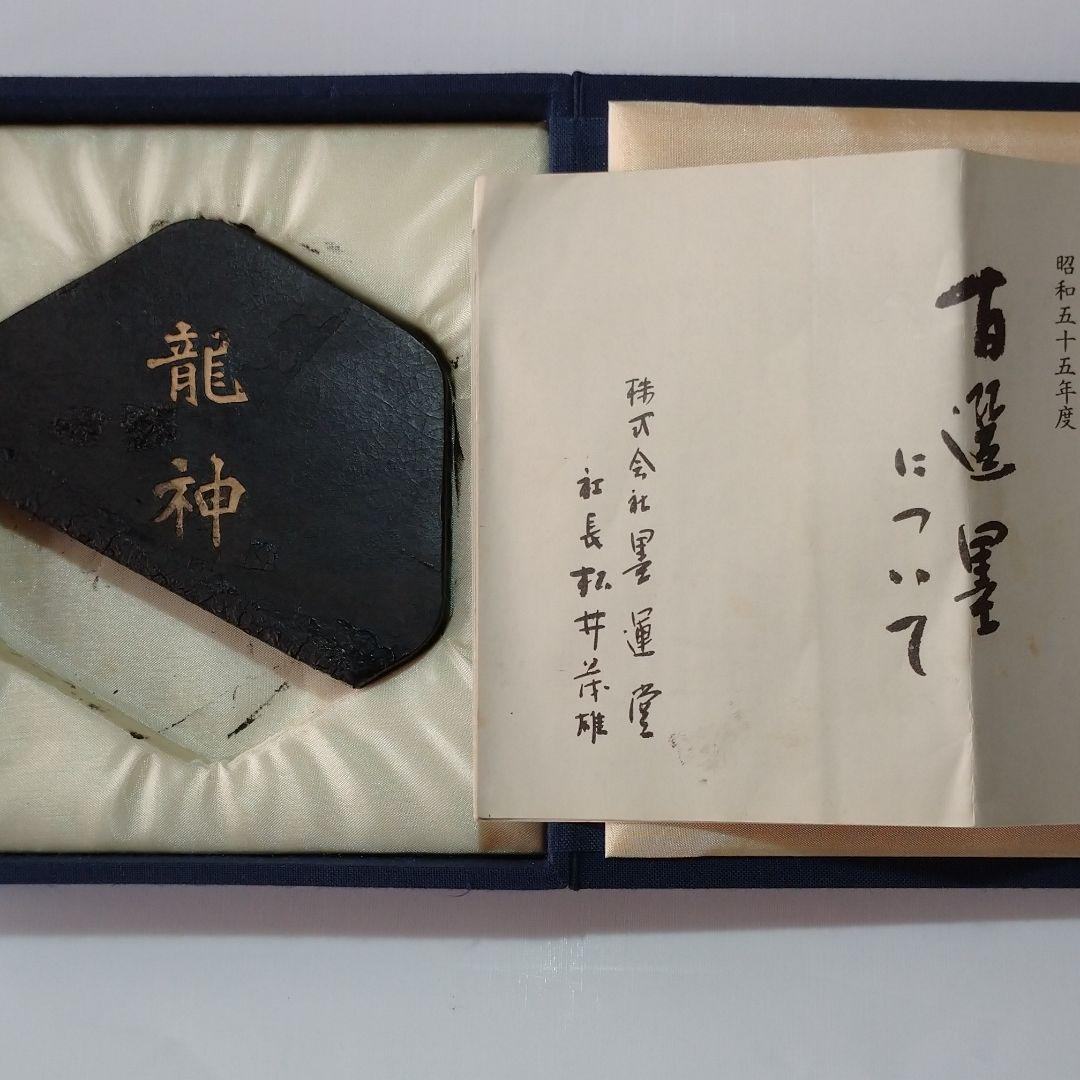 龍神
昭和五十五年度
百選墨
について
株式会社墨運堂
社長松井茂雄